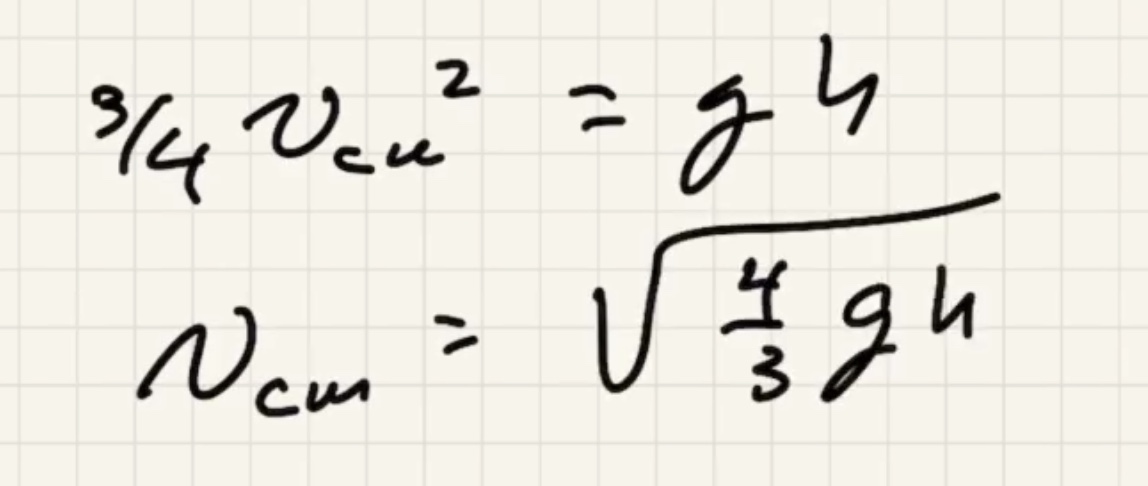 3/4 v_cm² = gh
v_cm = √(4/3 gh)